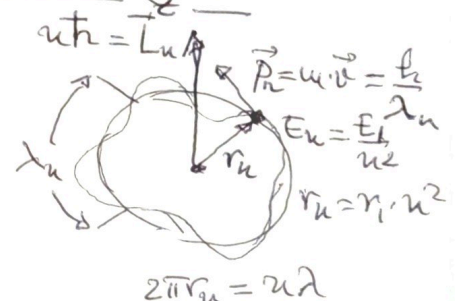 nħ = L⃗n
P⃗n = m·v⃗ = h/λn
En = E1/n²
λn
rn
rn = r1·n²
2πrn = nλ